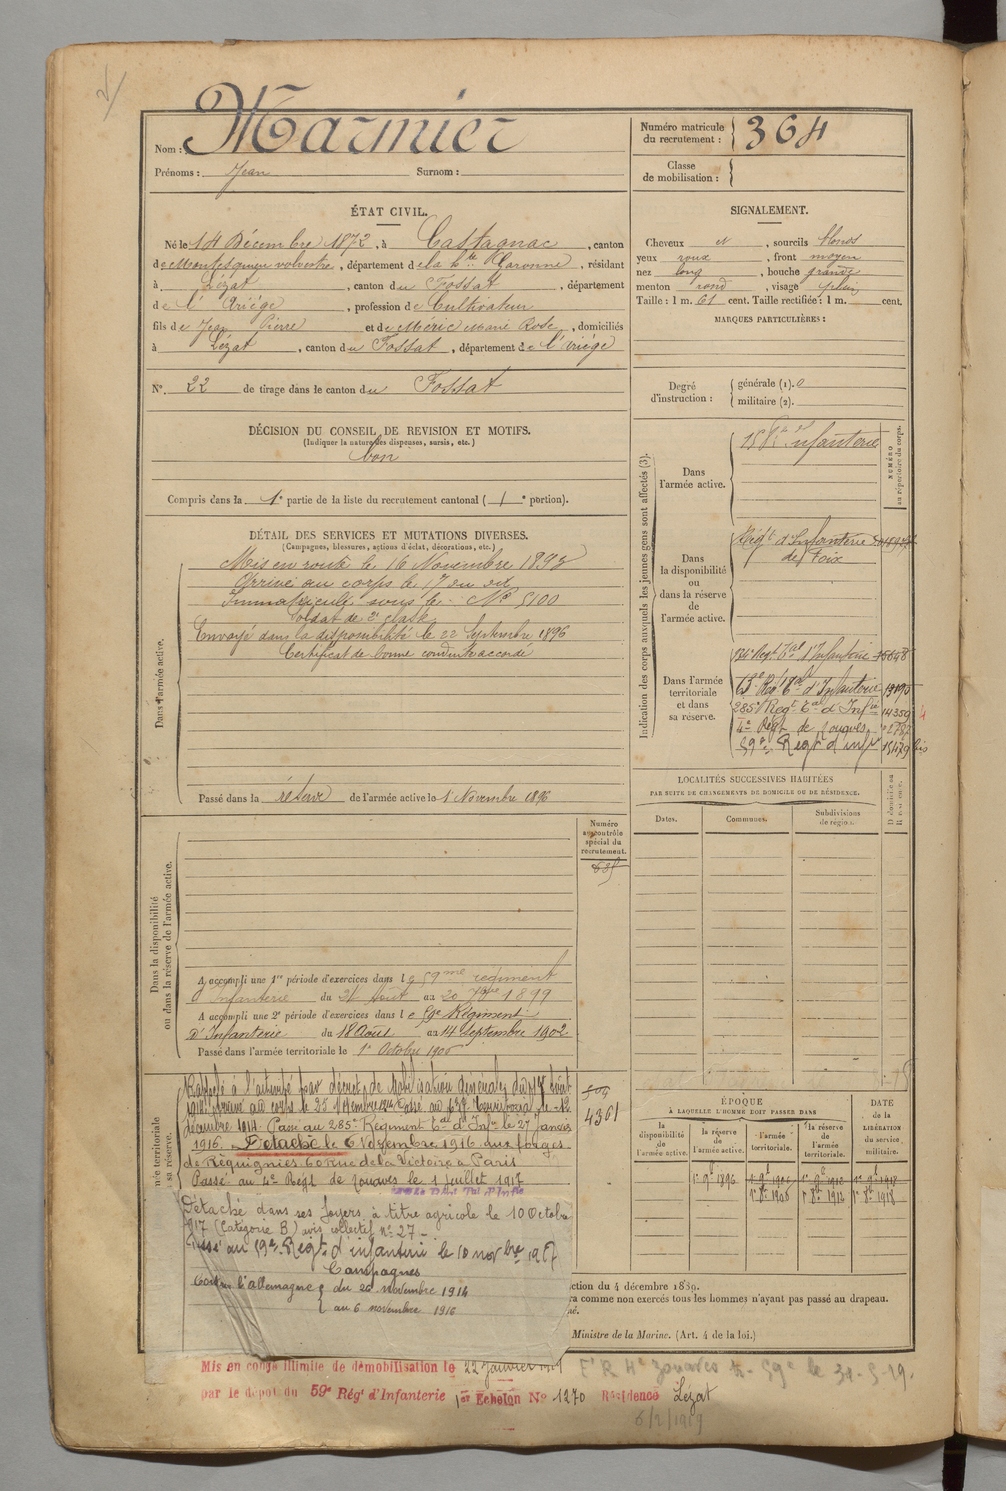 Nom : Marmier
Prénoms : Jean Surnom :
Numéro matricule du recrutement : 364
Classe de mobilisation :
ÉTAT CIVIL.
Né le 14 Décembre 1872, à Castagnac, canton
de Montesquieu volvestre, département de la hte Garonne, résidant
à Lézat, canton du Fossat, département
de l'Ariège, profession de Cultivateur
fils de Jean Pierre et de Méric Marie Rose, domiciliés
à Lézat, canton du Fossat, département de l'Ariège
N° 22 de tirage dans le canton du Fossat
SIGNALEMENT.
Cheveux et, sourcils blonds
yeux roux, front moyen
nez long, bouche grande
menton rond, visage plein
Taille : 1 m. 61 cent. Taille rectifiée : 1 m. cent.
MARQUES PARTICULIÈRES :
Degré d'instruction : générale (1). 0
militaire (2).
DÉCISION DU CONSEIL DE REVISION ET MOTIFS.
(Indiquer la nature des dispenses, sursis, etc.)
bon
Compris dans la 1e partie de la liste du recrutement cantonal ( 1 e portion).
DÉTAIL DES SERVICES ET MUTATIONS DIVERSES.
(Campagnes, blessures, actions d'éclat, décorations, etc.)
Dans l'armée active.
Mis en route le 16 Novembre 1893
Arrivé au corps le 17 du dit
Immatriculé sous le N° 5100
Soldat de 2e classe
Envoyé dans la disponibilité le 22 Septembre 1896
Certificat de bonne conduite accordé
Passé dans la réserve de l'armée active le 1 Novembre 1896
Indication des corps auxquels les jeunes gens sont affectés (3).
NUMÉRO au répertoire du corps.
Dans l'armée active.
15 Rt d'Infanterie
Dans la disponibilité ou dans la réserve de l'armée active.
Régt d'Infanterie
de Foix
Dans l'armée territoriale et dans sa réserve.
134e Regt Tal d'Infanterie
63e Regt Tal d'Infanterie
285e Regt Tal d'Infie 14359
4e Régt de zouaves
59e Régt d'infie 15479 bis
LOCALITÉS SUCCESSIVES HABITÉES
PAR SUITE DE CHANGEMENTS DE DOMICILE OU DE RÉSIDENCE.
Dates. Communes. Subdivisions de région.
D domicile ou R résidence.
Numéro au contrôle spécial du recrutement.
Dans la disponibilité ou dans la réserve de l'armée active.
A accompli une 1re période d'exercices dans le 59me régiment
d'Infanterie du 24 Août au 20 7bre 1899
A accompli une 2e période d'exercices dans le 59e Régiment
d'Infanterie du 18 Août au 14 Septembre 1902
Passé dans l'armée territoriale le 1er Octobre 1906
Rappelé à l'activité par décret de Mobilisation générale du 1er Août
1914. Arrivé au corps le 25 Novembre 1914. Passé au territorial le 12
décembre 1914. Passé au 285e Régiment Tal d'Infie le 27 Janvier
1916. Détaché le 6 Novembre 1916 aux forges
de Réquignies 60 rue de la Victoire à Paris
Passé au 4e Régt de zouaves le 1 juillet 1917
Détaché dans ses foyers à titre agricole le 10 Octobre
1917 (Catégorie B) avis collectif n° 27
Passé au 59e Régt d'infanterie le 10 novbre 1917
Campagnes
Contre l'allemagne du 26 novembre 1914
au 6 novembre 1916
509
4361
ÉPOQUE
À LAQUELLE L'HOMME DOIT PASSER DANS
la disponibilité de l'armée active.
la réserve de l'armée active.
l'armée territoriale.
la réserve de l'armée territoriale.
DATE de la LIBÉRATION du service militaire.
1er 9e 1896
1r 8e 1906 1r 8e 1912 1r 8e 1918
ction du 4 décembre 1889.
ra comme non exercés tous les hommes n'ayant pas passé au drapeau.
né.
Ministre de la Marine. (Art. 4 de la loi.)
Mis en congé illimité de démobilisation le 22 Janvier 1919
par le dépôt du 59e Régt d'Infanterie 1er Echelon N° 1270 Résidence Lézat
6/2/1919